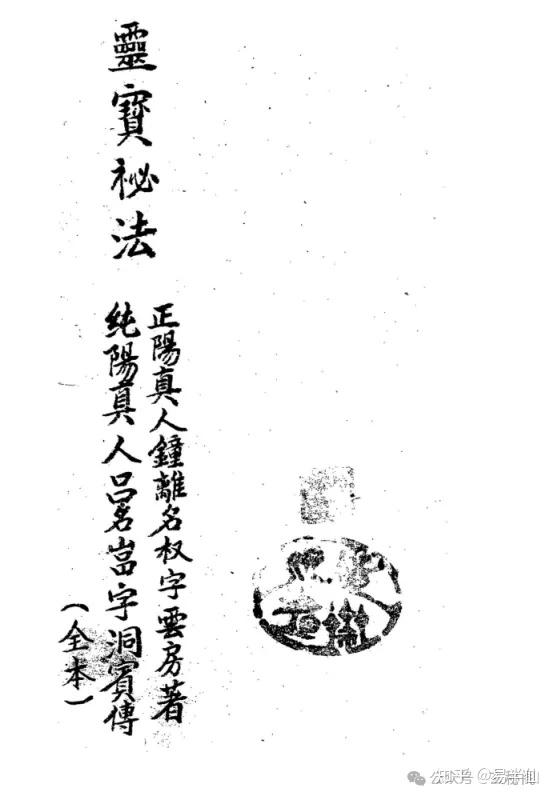 靈寶祕法
正陽真人鐘離名权字雲房著
純陽真人吕名嵓字洞賓傳
（全本）
公众号